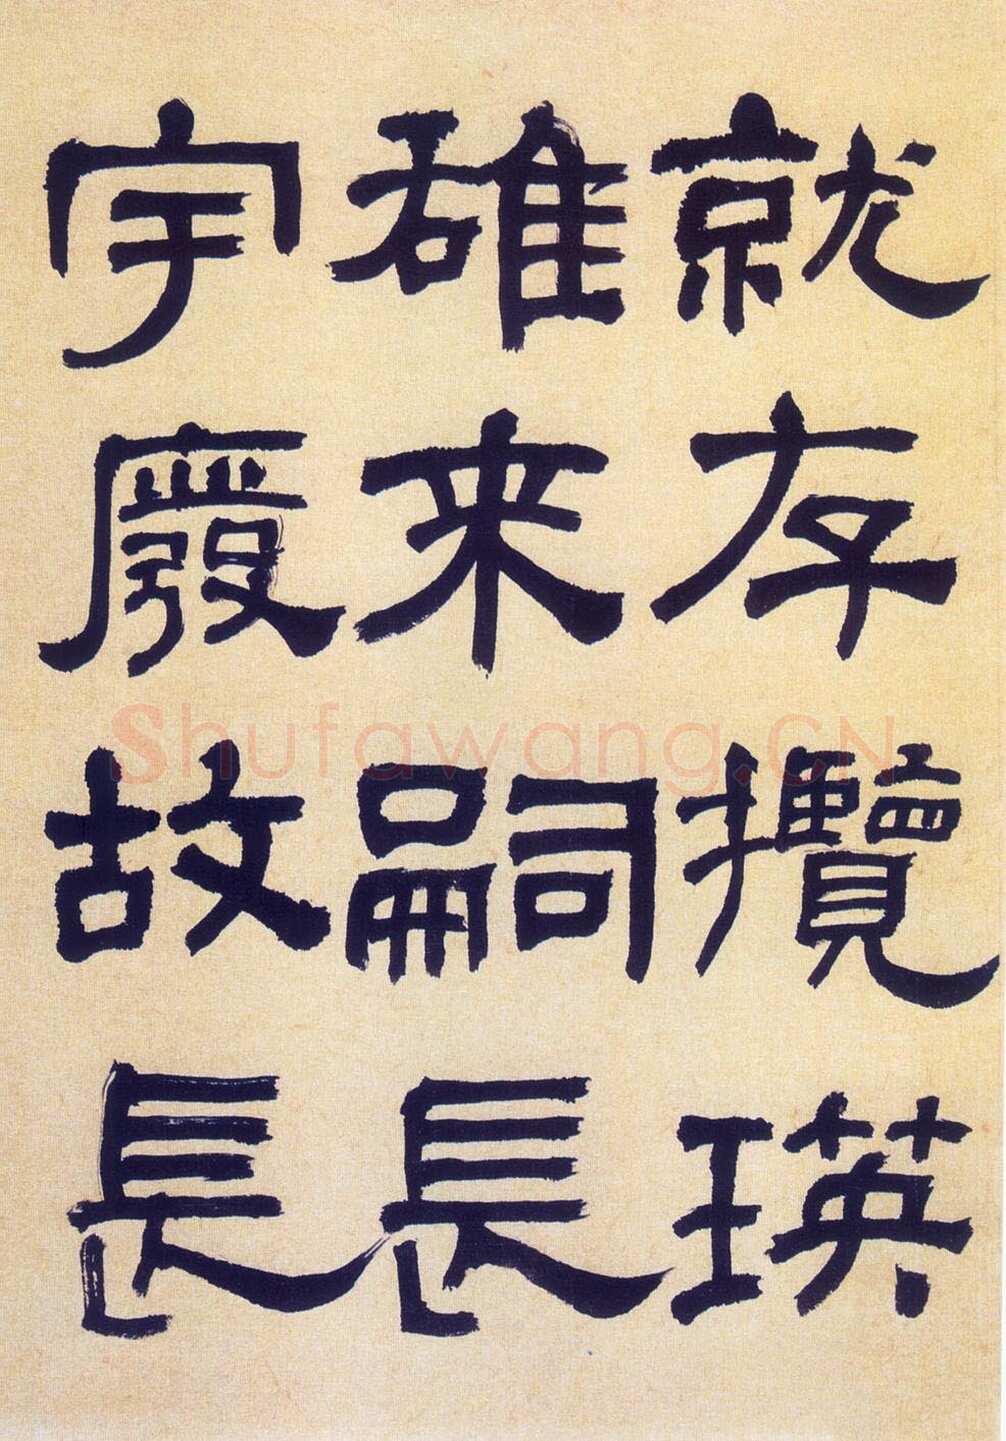 就存攬瑛
雄来嗣長
宇廢故長
Shufawang.CN